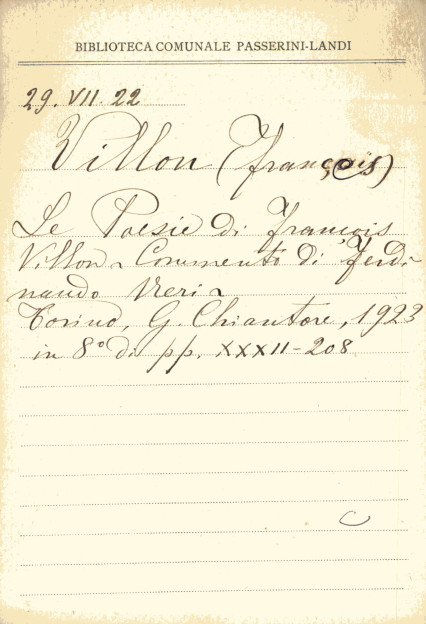 BIBLIOTECA COMUNALE PASSERINI-LANDI
29. VII. 22
Villon (François)
Le Poesie di François
Villon - Commento di Ferdi-
nando Neri -
Torino, G. Chiantore, 1923
in 8° di pp. XXXII-208
C